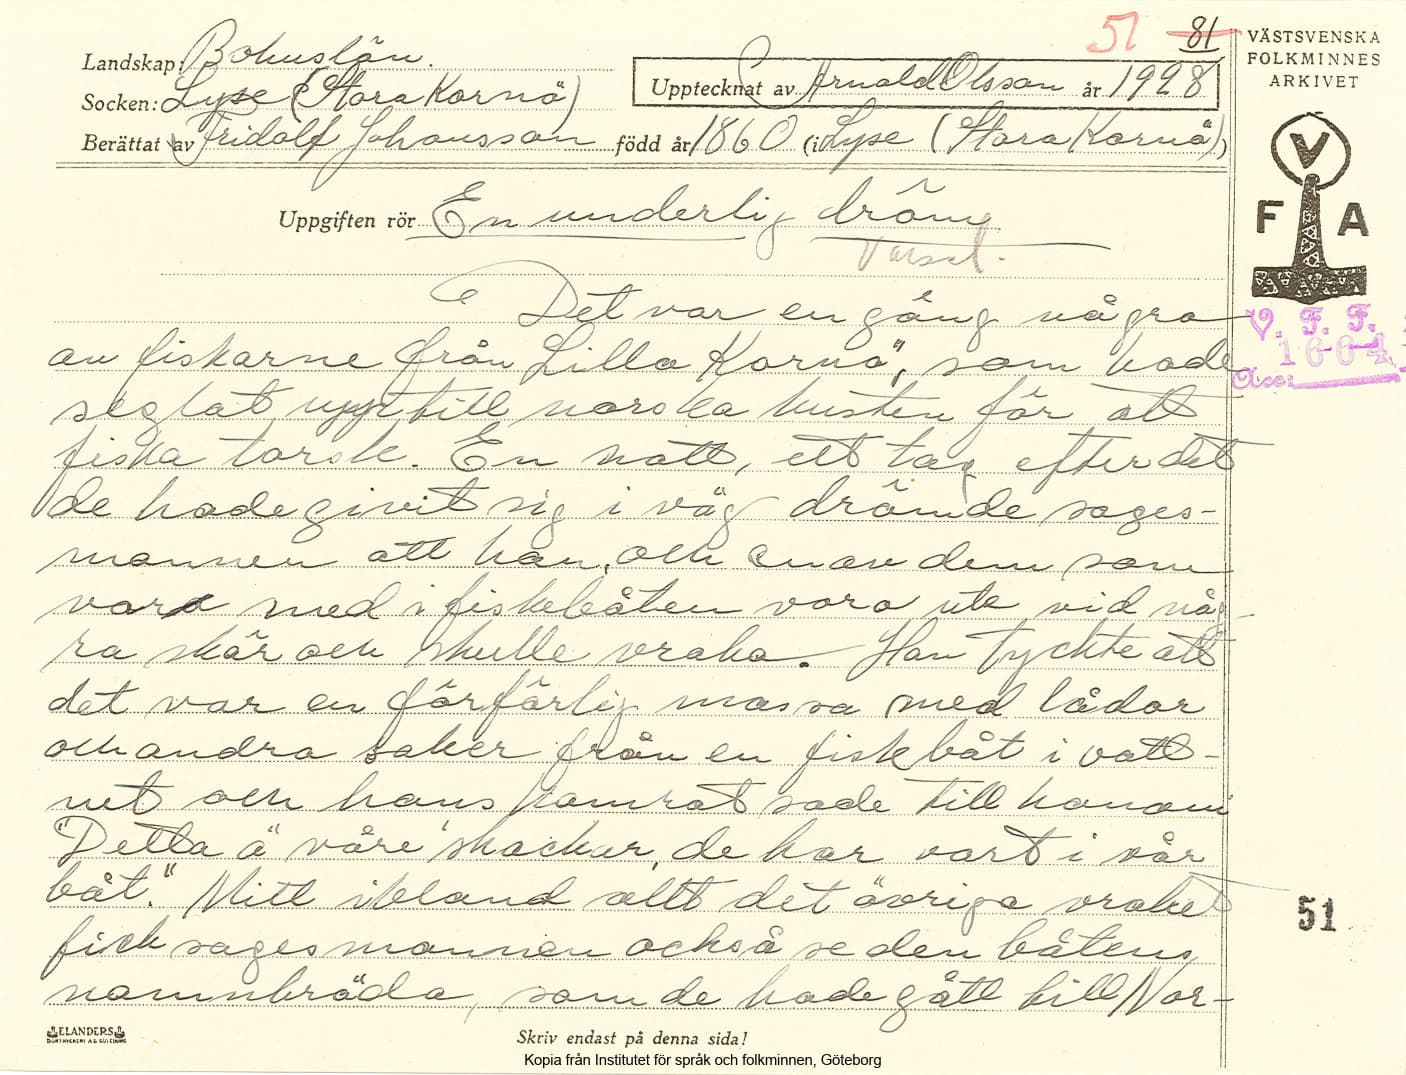 51 81
VÄSTSVENSKA
FOLKMINNES
ARKIVET
Landskap: Bohuslän.
Socken: Lyse (Stora Kornö)
Upptecknat av Arnold Olsson år 1928
Berättat av Fridolf Johansson född år 1860 (i Lyse (Stora Kornö))
V
F A
Uppgiften rör En underlig dröm
Varsel.
Det var en gång några
av fiskarne från Lilla Kornö, som hade
seglat upp till norska kusten för att
fiska torsk. En natt, ett tag efter det
de hade givit sig i väg drömde sages-
mannen att han, och en av dem som
var med i fiskebåten voro ute vid någ-
ra skär och skulle vraka. Han tyckte att
det var en förfärlig massa med lådor
och andra saker från en fiskbåt i vatt-
net och hans kamrat sade till honom
"Detta ä våre skackar, de har vart i vår
båt." Mitt ibland allt det övriga vraket
fick sagesmannen också se den båtens
namnbräda, som de hade gått till Nor-
V. F. F.
1664
Acc:
51
ELANDERS
BOKTRYCKERI A.B. GÖTEBORG
Skriv endast på denna sida!
Kopia från Institutet för språk och folkminnen, Göteborg